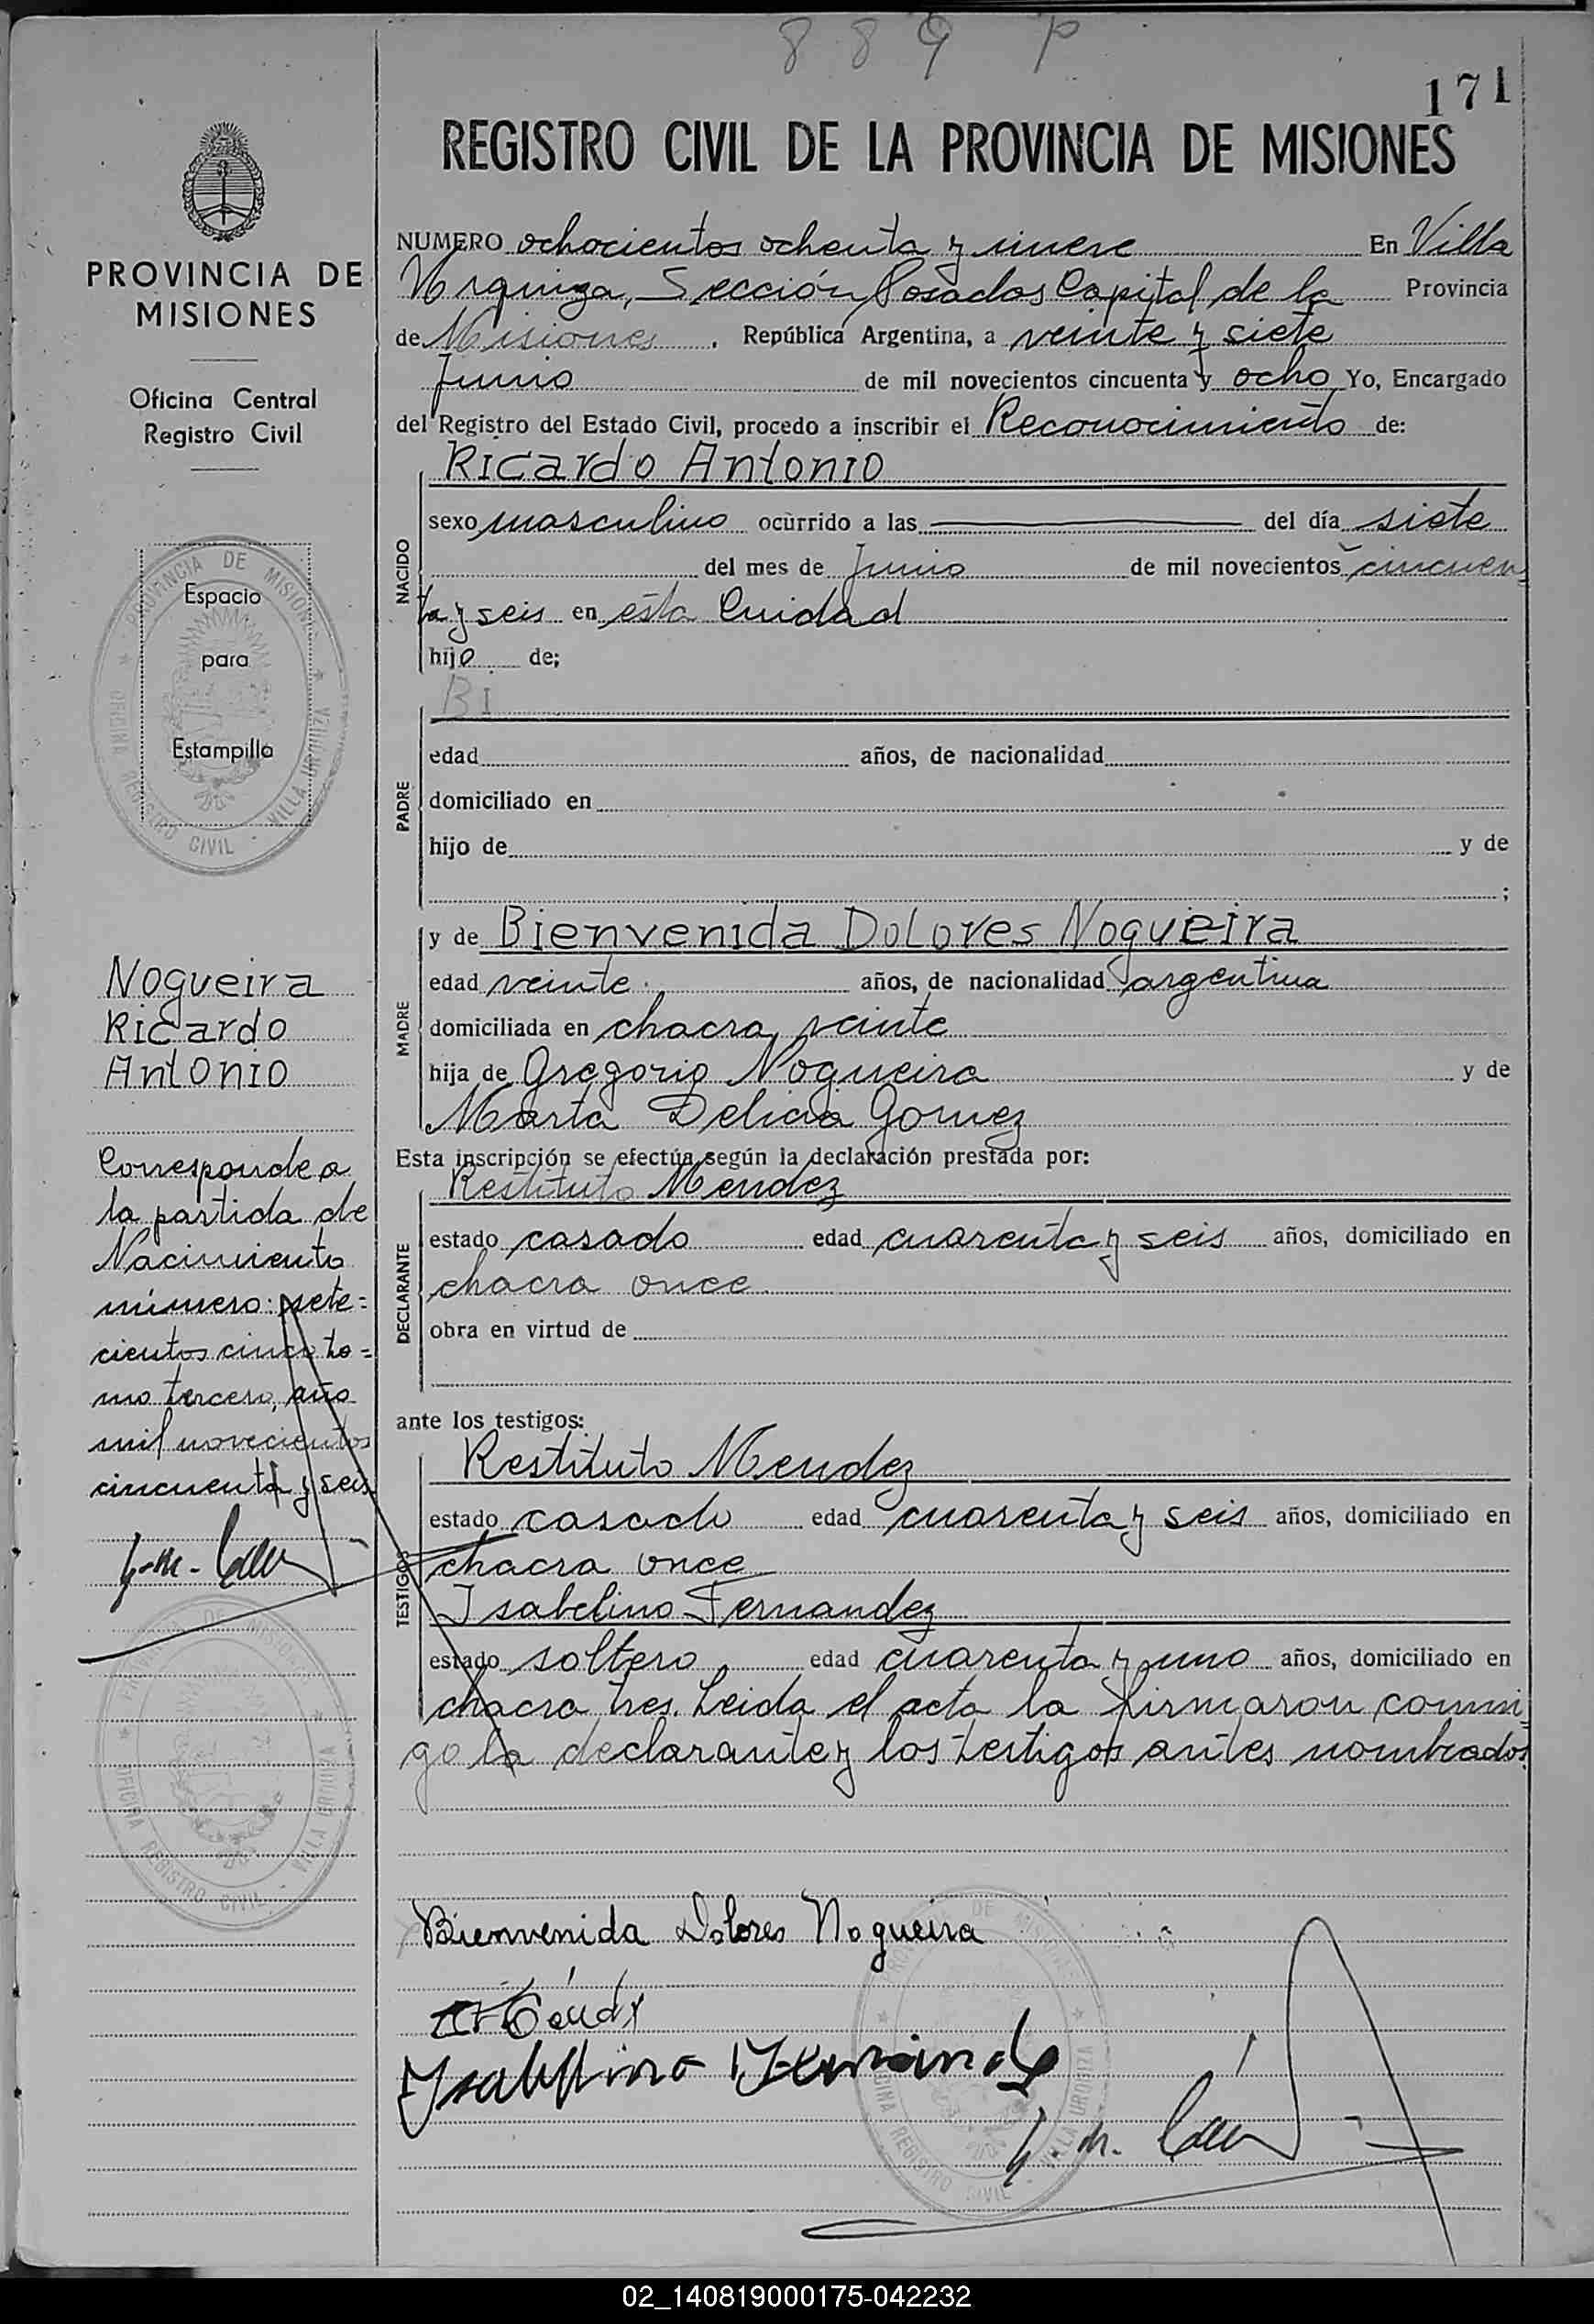 889 P
171
REGISTRO CIVIL DE LA PROVINCIA DE MISIONES
PROVINCIA DE
MISIONES
Oficina Central
Registro Civil
Espacio
para
Estampilla
PROVINCIA DE MISIONES
OFICINA REGISTRO CIVIL - VILLA URQUIZA
Nogueira
Ricardo
Antonio
Corresponde a
la partida de
Nacimiento
número: sete=
cientos cinco to=
mo tercero, año
mil novecientos
cincuenta y seis
PROVINCIA DE MISIONES
OFICINA REGISTRO CIVIL - VILLA URQUIZA
NUMERO ochocientos ochenta y nueve En Villa
Urquiza, Sección Posadas Capital de la Provincia
de Misiones, República Argentina, a veinte y siete
Junio de mil novecientos cincuenta y ocho Yo, Encargado
del Registro del Estado Civil, procedo a inscribir el Reconocimiento de:
NACIDO
Ricardo Antonio
sexo masculino ocurrido a las del día siete
del mes de Junio de mil novecientos cincuen
ta y seis en esta Ciudad
hijo de;
PADRE
Bi
edad años, de nacionalidad
domiciliado en
hijo de y de
;
MADRE
y de Bienvenida Dolores Nogueira
edad veinte. años, de nacionalidad argentina
domiciliada en chacra veinte
hija de Gregorio Nogueira y de
Marta Delicia Gomez
Esta inscripción se efectúa según la declaración prestada por:
DECLARANTE
Restituto Mendez
estado casado edad cuarenta y seis años, domiciliado en
chacra once
obra en virtud de
ante los testigos:
TESTIGOS
Restituto Mendez
estado casado edad cuarenta y seis años, domiciliado en
chacra once
Isabelino Fernandez
estado soltero edad cuarenta y uno años, domiciliado en
chacra tres. Leida el acta la firmaron conmi
go la declarante y los testigos antes nombrados.
Bienvenida Dolores Nogueira
Isabelino Fernande
PROVINCIA DE MISIONES
OFICINA REGISTRO CIVIL - VILLA URQUIZA
02_140819000175-042232